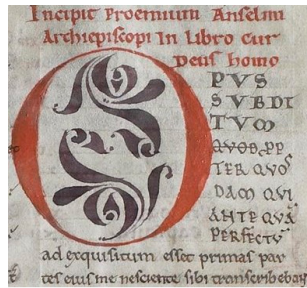 Incipit Proemium Anselmi
Archiepiscopi In Libro cur
Deus homo
OPUS
SUBDI
TUM
QUOD PP
TER QUOS
DAM QUI
ANTE QUA
PERFECTU
ad exquisitum esset primas par
tes eius me nesciente sibi transcribebant